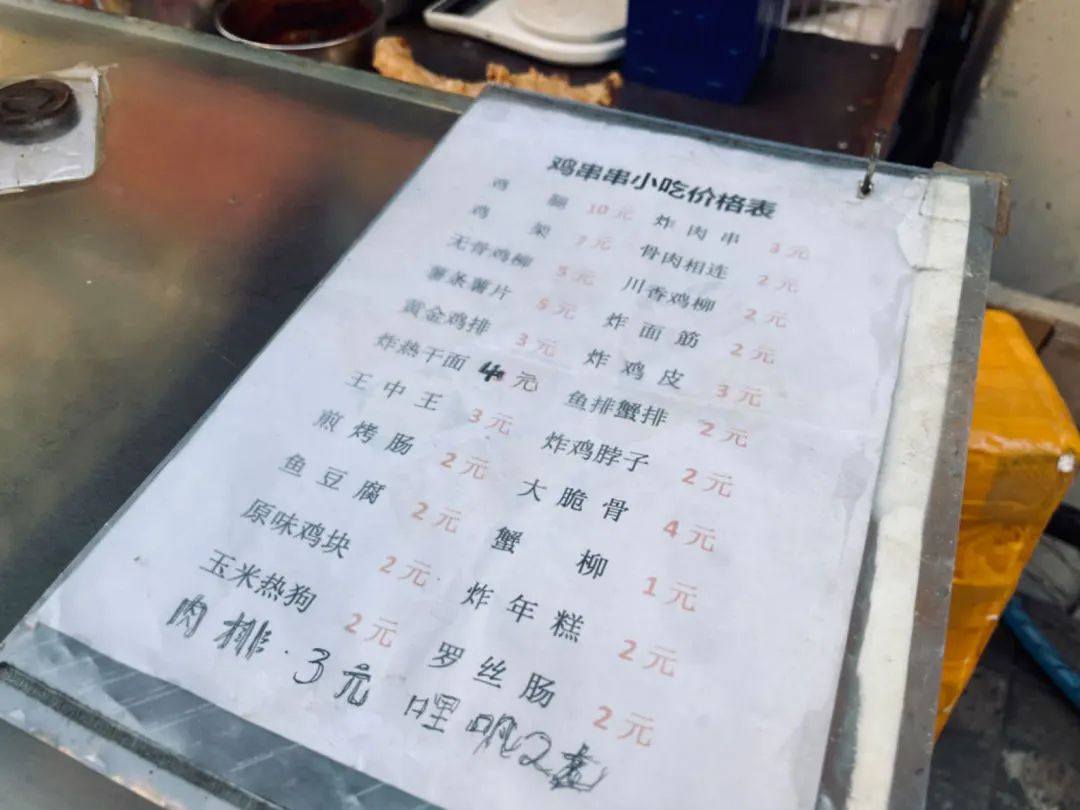 鸡串串小吃价格表
鸡腿 10元 炸肉串 3元
鸡架 7元 骨肉相连 2元
无骨鸡柳 5元 川香鸡柳 2元
薯条薯片 5元 炸面筋 2元
黄金鸡排 3元 炸鸡皮 3元
炸热干面 4元 鱼排蟹排 2元
王中王 3元 炸鸡脖子 2元
煎烤肠 2元 大脆骨 4元
鱼豆腐 2元 蟹柳 1元
原味鸡块 2元 炸年糕 2元
玉米热狗 2元 罗丝肠 2元
肉排·3元